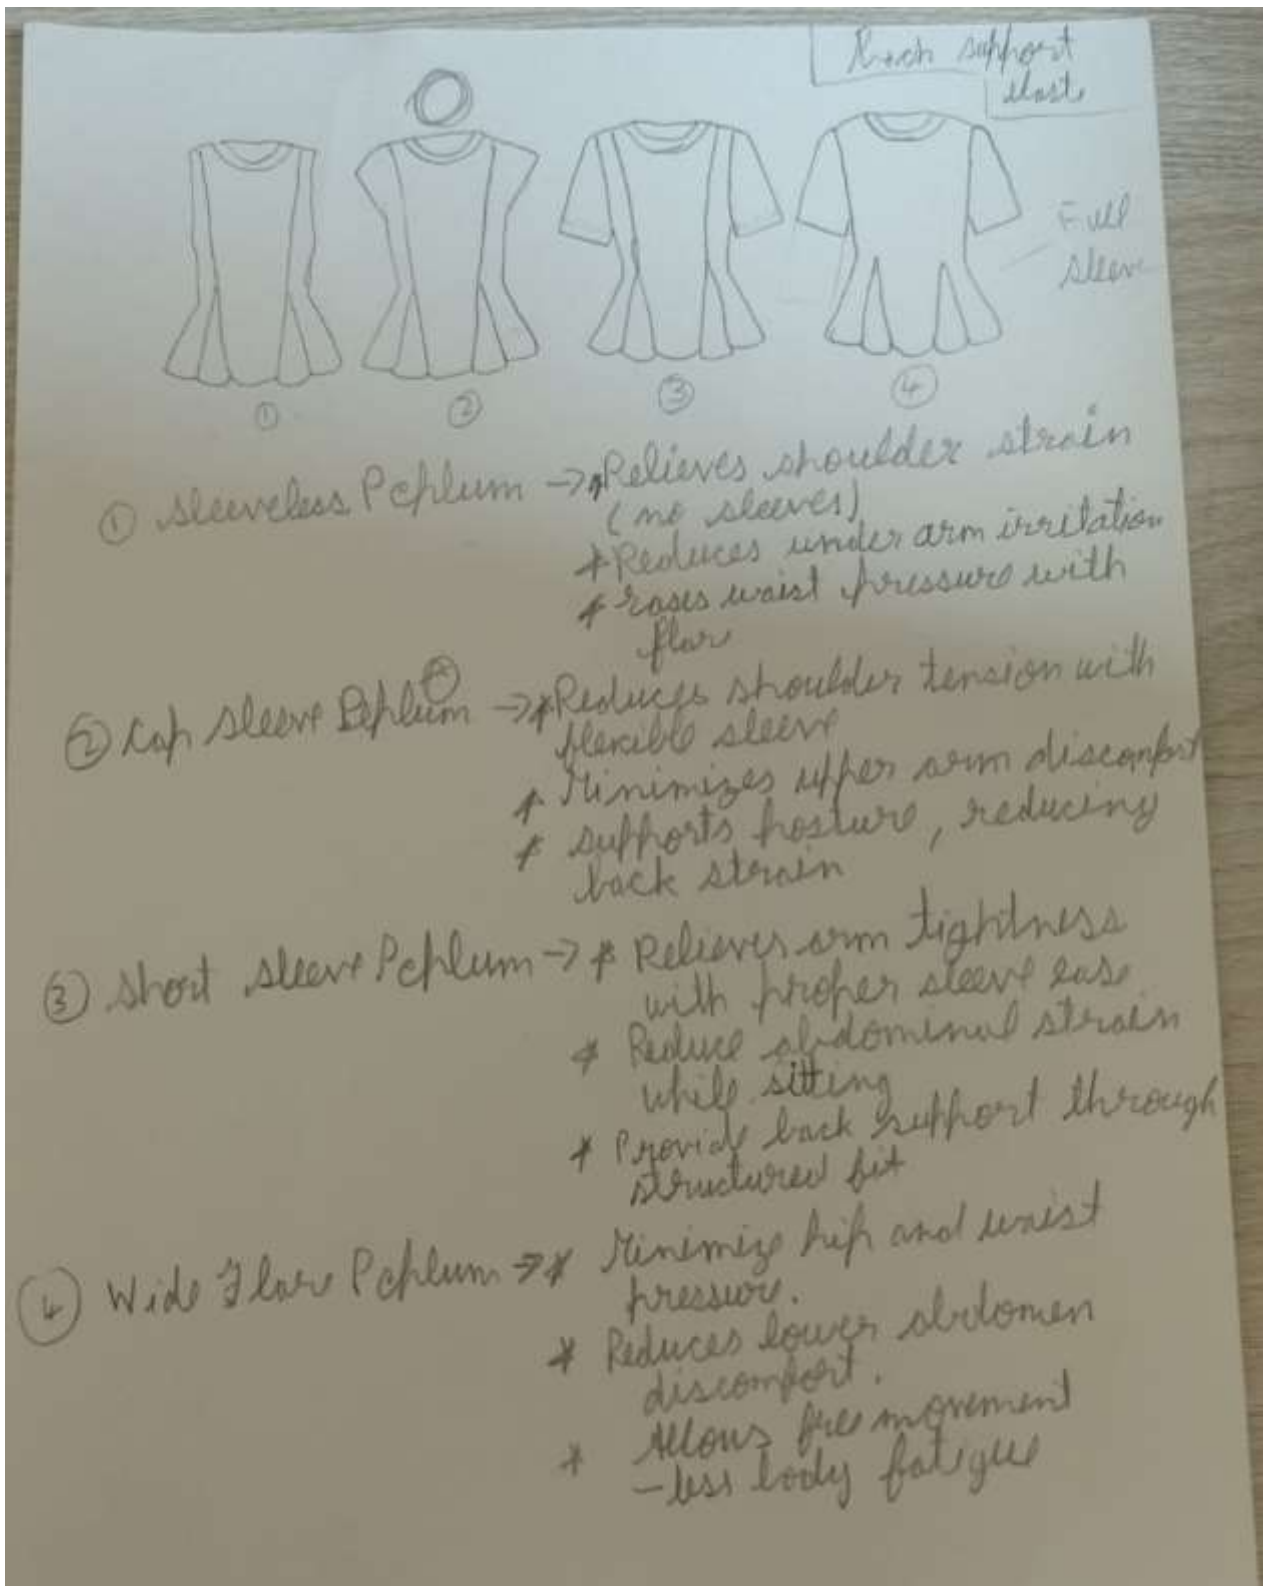 Back support
elast
Full
sleeve
① ② ③ ④
① sleeveless Peplum → * Relieves shoulder strain
(no sleeves)
* Reduces under arm irritation
* eases waist pressure with
flare
② Cap sleeve Peplum → * Reduces shoulder tension with
flexible sleeve
* Minimizes upper arm discomfort
* supports posture, reducing
back strain
③ short sleeve Peplum → * Relieves arm tightness
with proper sleeve ease
* Reduce abdominal strain
while sitting
* Provide back support through
structured fit
④ Wide Flare Peplum → * Minimize hip and waist
pressure.
* Reduces lower abdomen
discomfort.
* Allows free movement
- less body fatigue